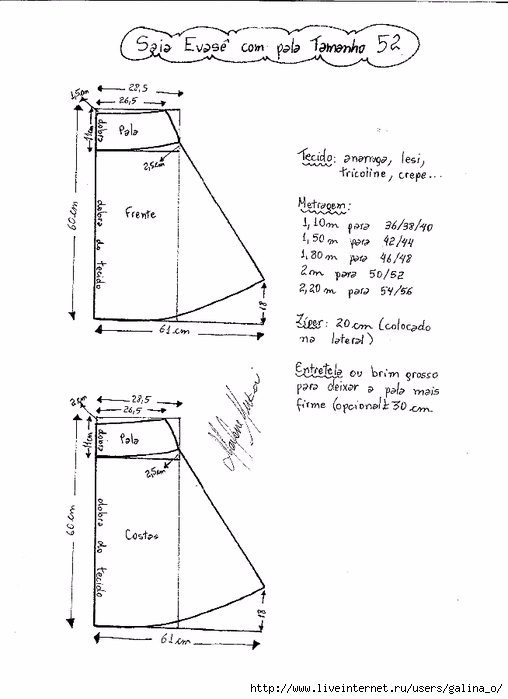 Saia Evasê com pala Tamanho 52
28,5
26,5
1,5cm
11cm
dobra
Pala
2,5cm
60cm
dobra do tecido
Frente
18
61cm
Tecido: anarruga, lesi,
tricoline, crepe...
Metragem:
1,10m para 36/38/40
1,50m para 42/44
1,80m para 46/48
2m para 50/52
2,20m para 54/56
Zíper: 20cm (colocado
na lateral)
Entretela ou brim grosso
para deixar a pala mais
firme (opcional) ± 30cm
28,5
26,5
11cm
dobra
Pala
2,5cm
60cm
dobra do tecido
Costas
18
61cm
http://www.liveinternet.ru/users/galina_o/